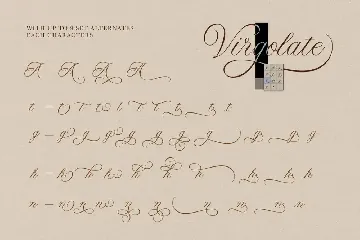 WITH UP TO 8 SET ALTERNATES
EACH CHARACTERS
Virgolate
A A A A
t - t t t t t t t t t
g - g g g g g g g g g
h - h h h h h h h h h
n - n n n n n n n n n